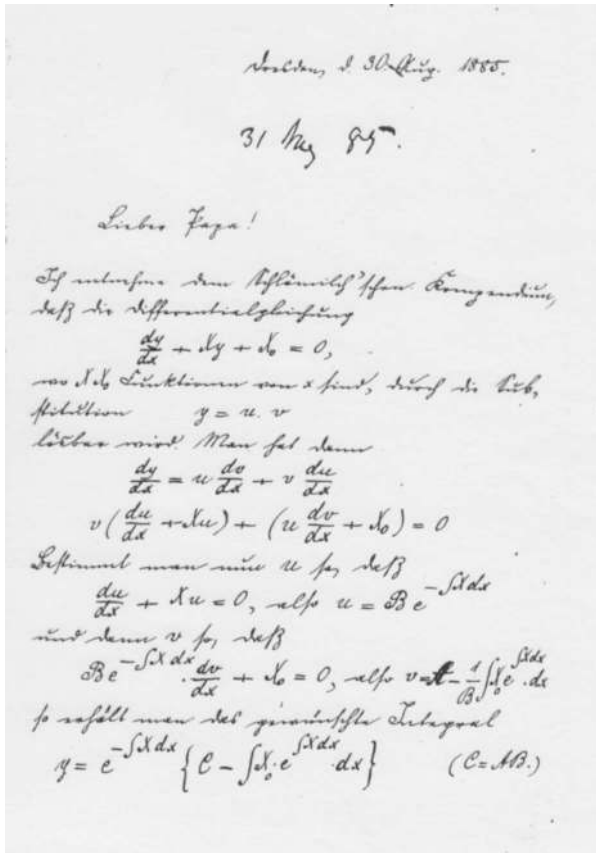 Dresden, d. 30. Aug. 1885.
31 Aug 85.
Lieber Papa!
Ich entnehme dem Schlömilch'schen Kompendium,
daß die Differentialgleichung
dy/dx + Xy + X₀ = 0,
wo X X₀ Funktionen von x sind, durch die Sub-
stitution y = u. v
lösbar wird. Man hat dann
dy/dx = u dv/dx + v du/dx
v(du/dx + Xu) + (u dv/dx + X₀) = 0
Bestimmt man nun u so, daß
du/dx + Xu = 0, also u = Be^(-∫Xdx)
und dann v so, daß
Be^(-∫Xdx) · dv/dx + X₀ = 0, also v = A - 1/B ∫X₀e^(∫Xdx)·dx
so erhält man das gewünschte Integral
y = e^(-∫Xdx) {C - ∫X₀·e^(∫Xdx)·dx} (C = AB.)